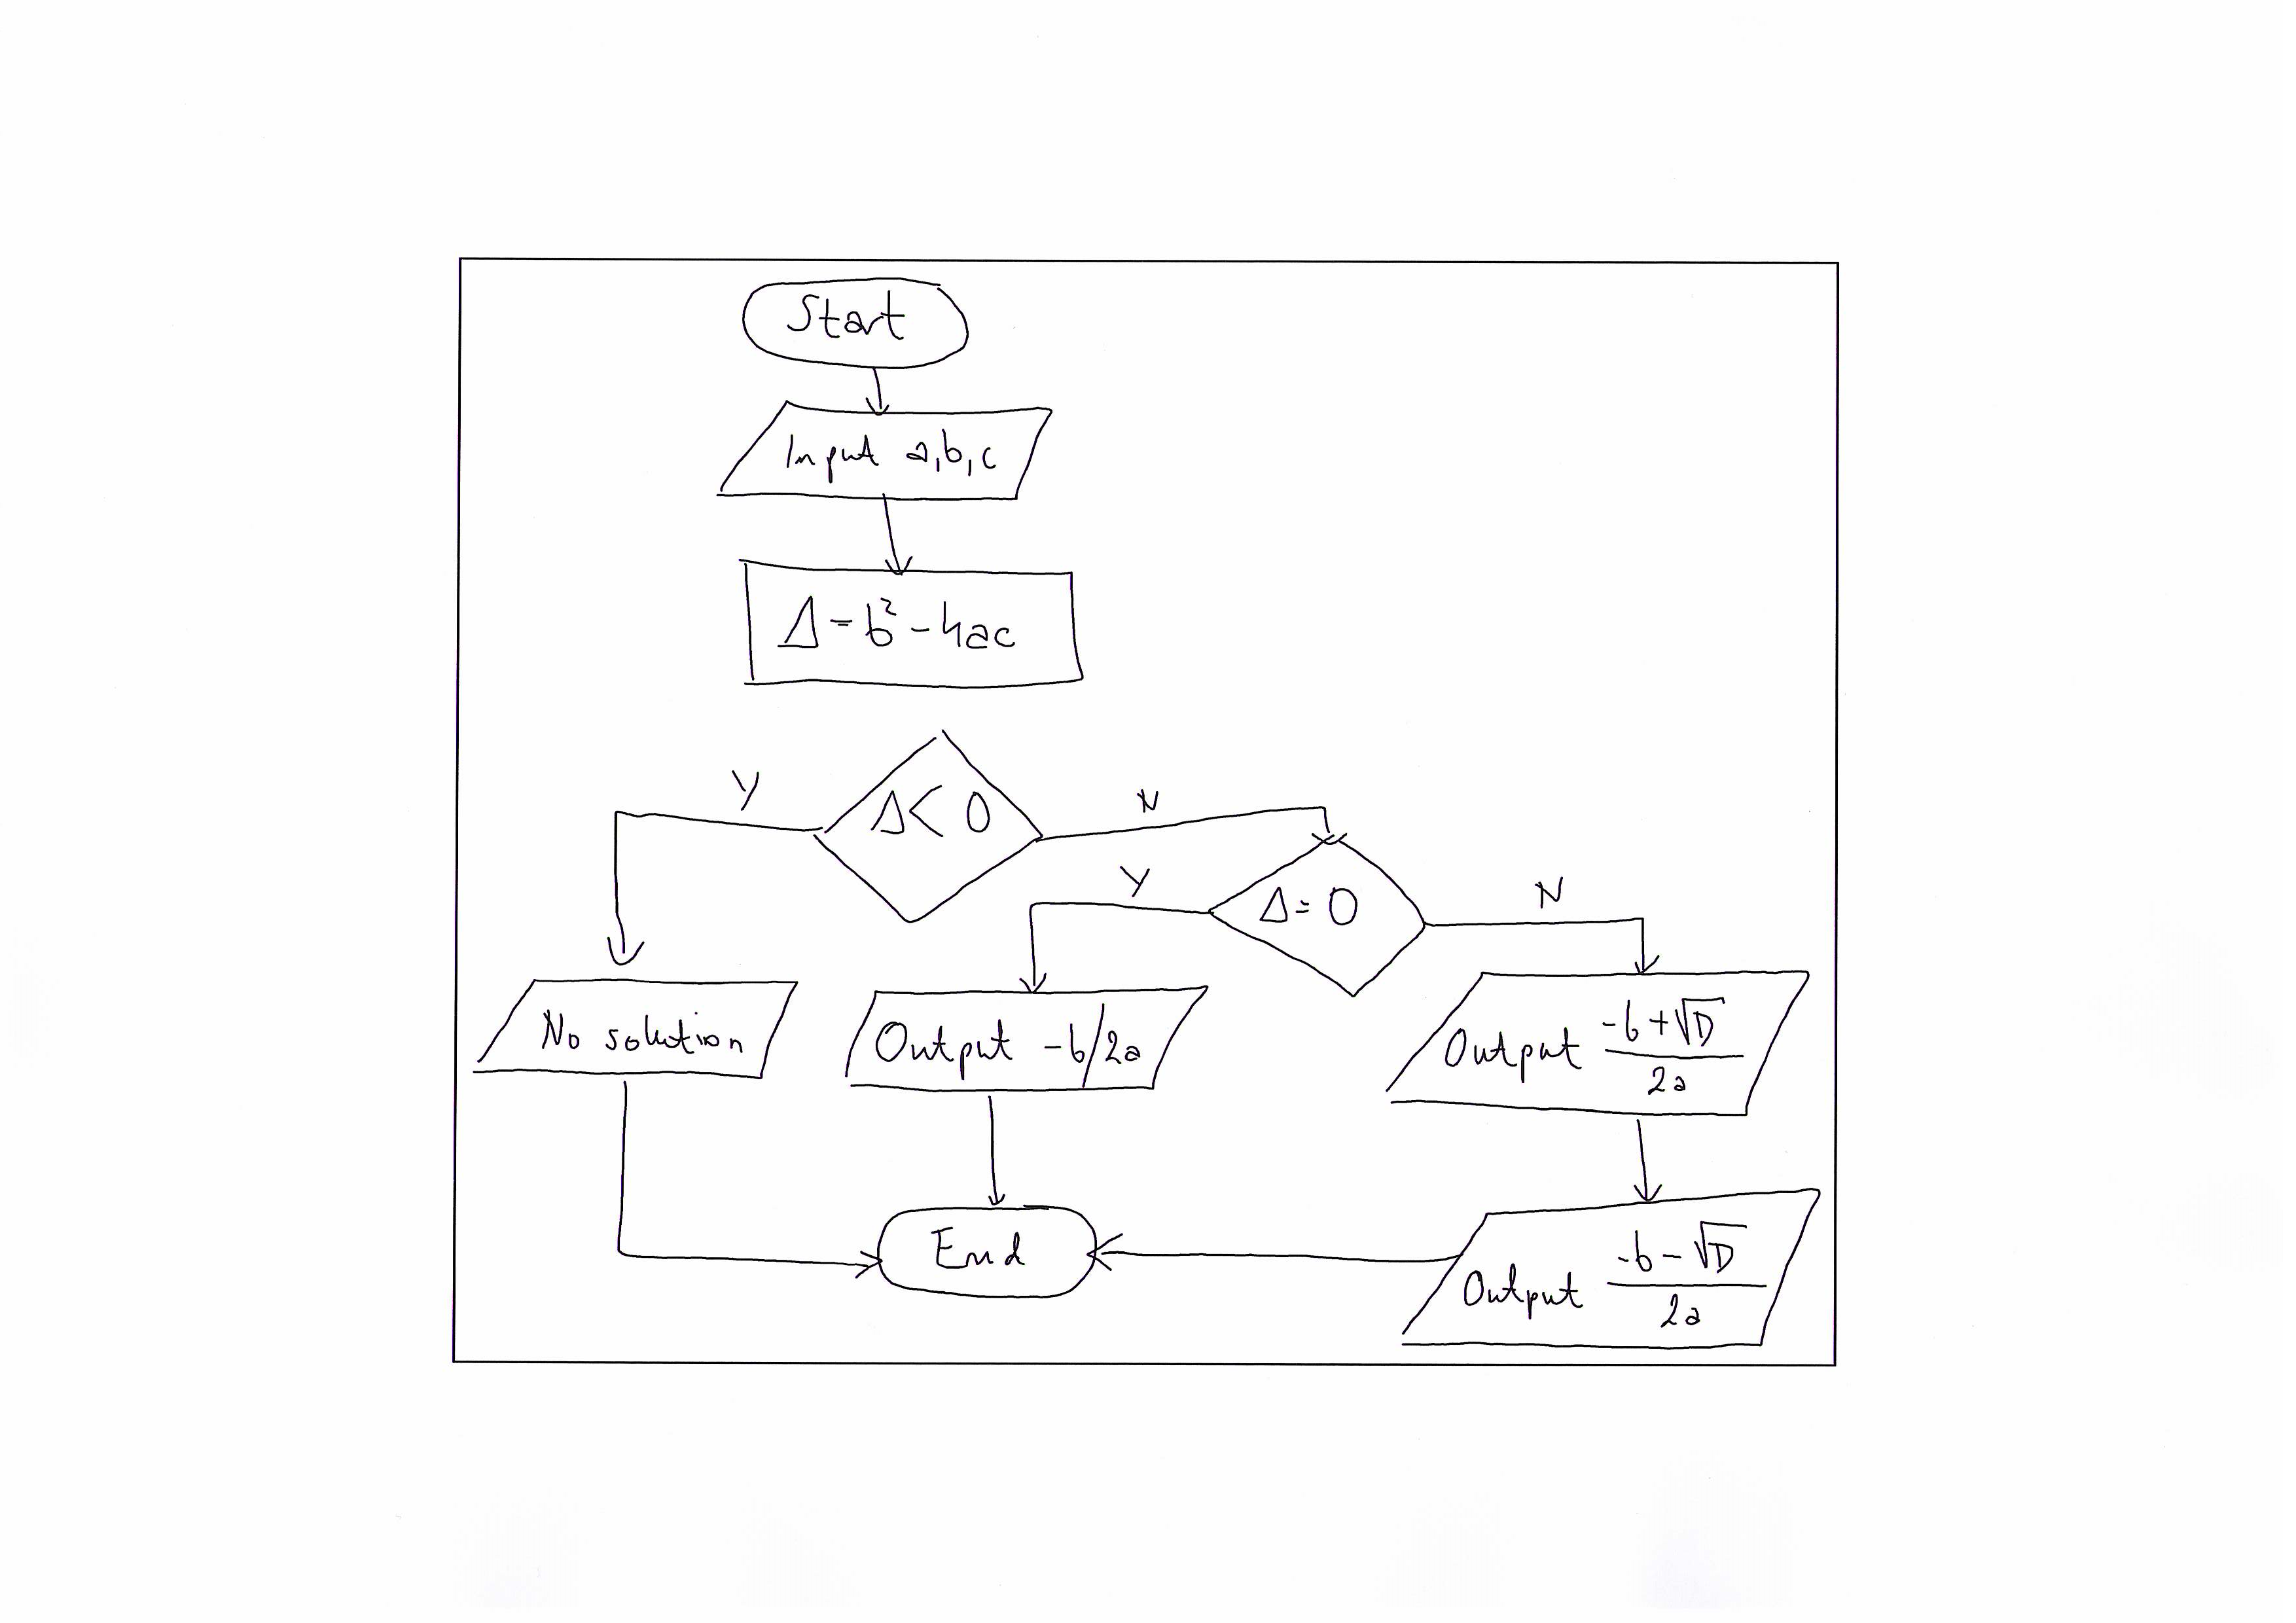 Start
Input a,b,c
Δ=b²-4ac
Y
Δ< 0
N
Y
Δ= 0
N
No solution
Output -b/2a
Output (-b+√D)/2a
End
Output (-b-√D)/2a